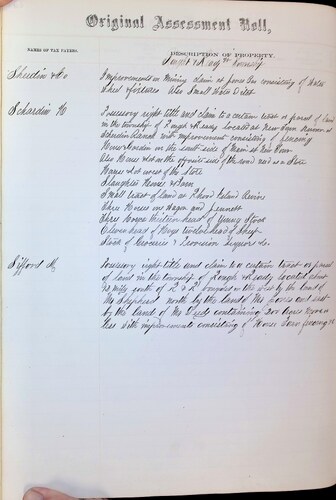 Original Assessment Roll,
NAMES OF TAX PAYERS.
DESCRIPTION OF PROPERTY.
Rough & Ready
Improvements on Mining Claim at consisting of
Also Small Water Ditch
Schardin H
Possessory right title and claim to a certain tract or parcel of land
in the township of Rough & Ready located at New Town known as
Schardin Ranch with improvements consisting of fencing
House Garden on the south side of Main st New Town
Also House & Lot on the opposite side of the road used as a Store
House & Lot west of the Store
Slaughter House & Barn
Small tract of land at Rhode Island Ravine
Three Horses one Wagon and
Three head of Young Stock
Eleven head of Hogs head of
Stock of Groceries & Provision Liquors &c.
Gifford M,
Possessory right title and claim to a certain tract or parcel
of land in the township of Rough & Ready located about
1/2 mile south of R & R bounded on the west by the land of
Mr Shepherd north by the land of and east
by the land of Mr containing 200 Acres more or
less with improvements consisting of House Barn fencing &c